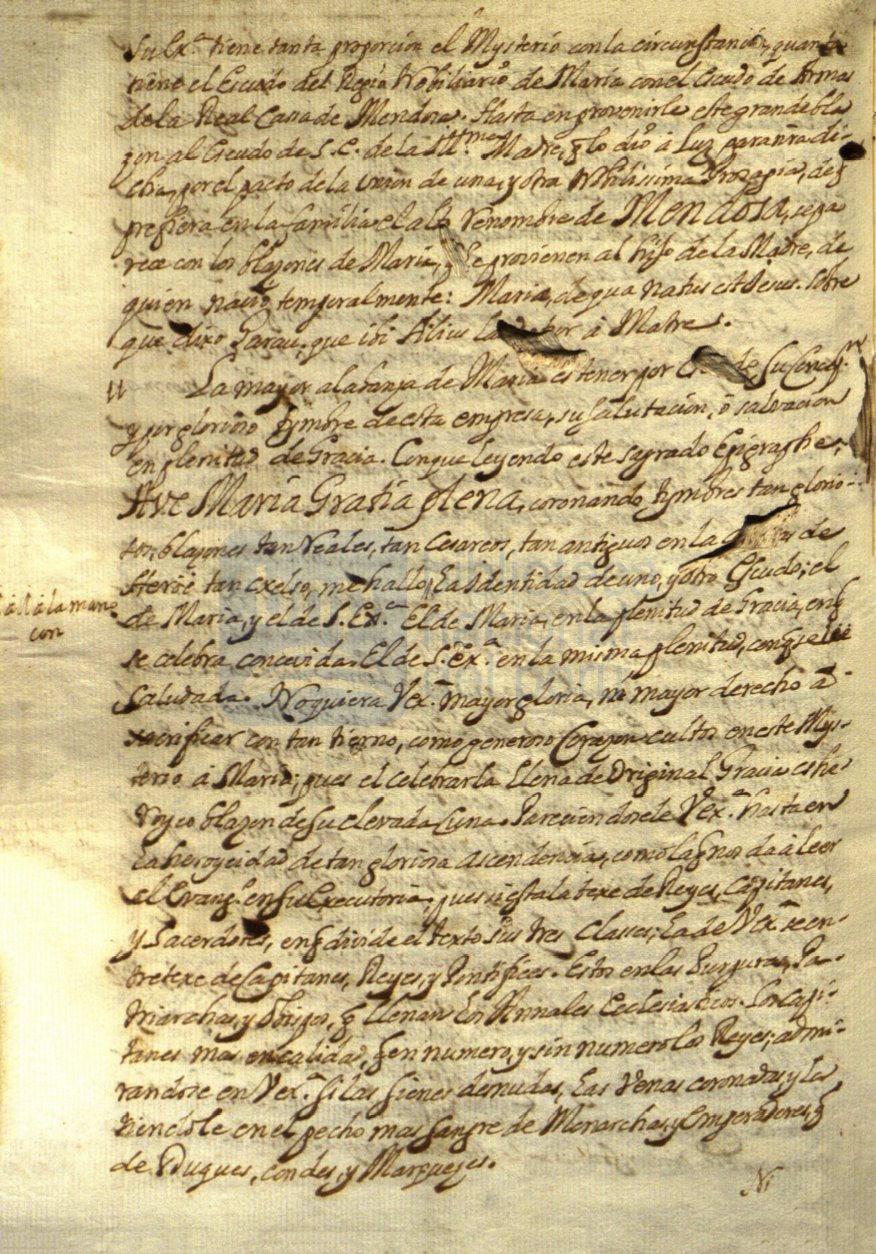 Su Ex.ª tiene tanta proporcion el Mysterio con la circunstancia, quanta
tiene el Escudo del Regio Nobiliario de Maria con el Escudo de Armas
de la Real Casa de Mendosa. Hasta en provenirle este grande bla
zon al Escudo de S. E. de la Ill.tma Madre, q̃ lo dio à Luz para nra di-
cha, por el pacto de la union de una, y otra Nobilissima Prosapia, de q̃
prefiera en la familia el alto renombre de Mendosa, se pa
rece con los blazones de Maria, q̃ le provienen al Hijo de la Madre, de
quien naciò temporalmente: Maria, de qua natus est Jesus. Sobre
que dixo Parau, que ibi filius à Matre.
11 La mayor alabanza de Maria es tener por de Su Concep.n
y por glorioso tymbre de esta empresa, su salutacion, ò salvacion
en plenitud de Gracia. Conque leyendo este sagrado Epigraphe,
Ave Maria Gratia plena, coronando tymbres tan glorio-
sos, blazones tan reales, tan Cesareos, tan antiguos en la de
Heroe tan excelso, me hallo la identidad de uno, y otro Escudo; el
de Maria, y el de S. Ex.ª El de Maria, en la plenitud de Gracia, en q̃
se celebra concevida. El de S. Ex.ª en la misma plenitud, con q̃ se leè
Saludada. No quiera Vex.ª mayor gloria, ni mayor derecho à
sacrificar con tan tierno, como generoso Corazon cultos en este Mys-
terio à Maria; pues el celebrarla Llena de Original Gracia es he-
royco blazon de su elevada Cuna. Pareciendosele Vex.ª hasta en
la heroycidad de tan gloriosa ascendencia, como la q̃ nos da à leer
el Evang.º en su Executoria; pues si esta la texe de Reyes, Capitanes,
y Sacerdotes, en q̃ divide el texto sus tres Classes; La de Vex.ª se en-
tretexe de Capitanes, Reyes, y Pontifices. Estos en las Purpuras, Pa-
triarchas, y Obispos, q̃ llenan los Annales Ecclesiasticos. Los Capi-
tanes mas en calidad, q̃ en numero, y sin numero los Reyes; admi-
randose en Vex.ª si las sienes desnudas, las venas coronadas, y la
tiendole en el pecho mas sangre de Monarchas, y Emperadores, q̃
de Duques, condes, y Marquezes.
Ni
a la mane
con